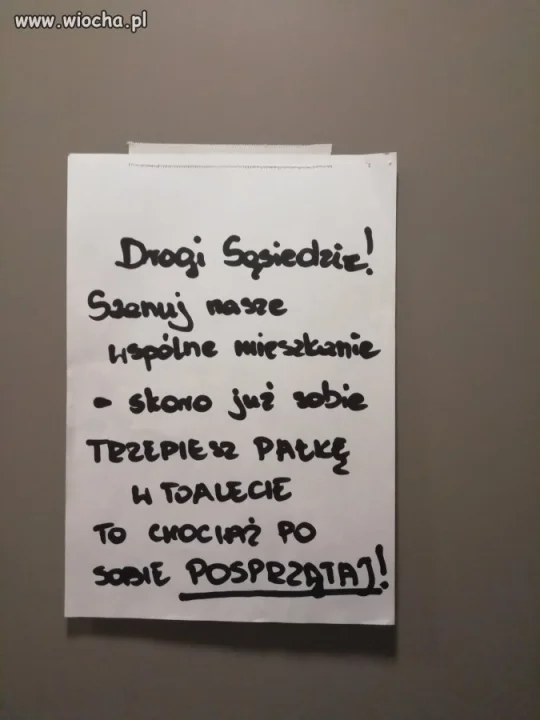 www.wiocha.pl
Drogi Sąsiedzie!
Szanuj nasze
wspólne mieszkanie
- skoro już sobie
TRZEPIESZ PAŁKĘ
W TOALECIE
TO CHOCIAŻ PO
SOBIE POSPRZĄTAJ!